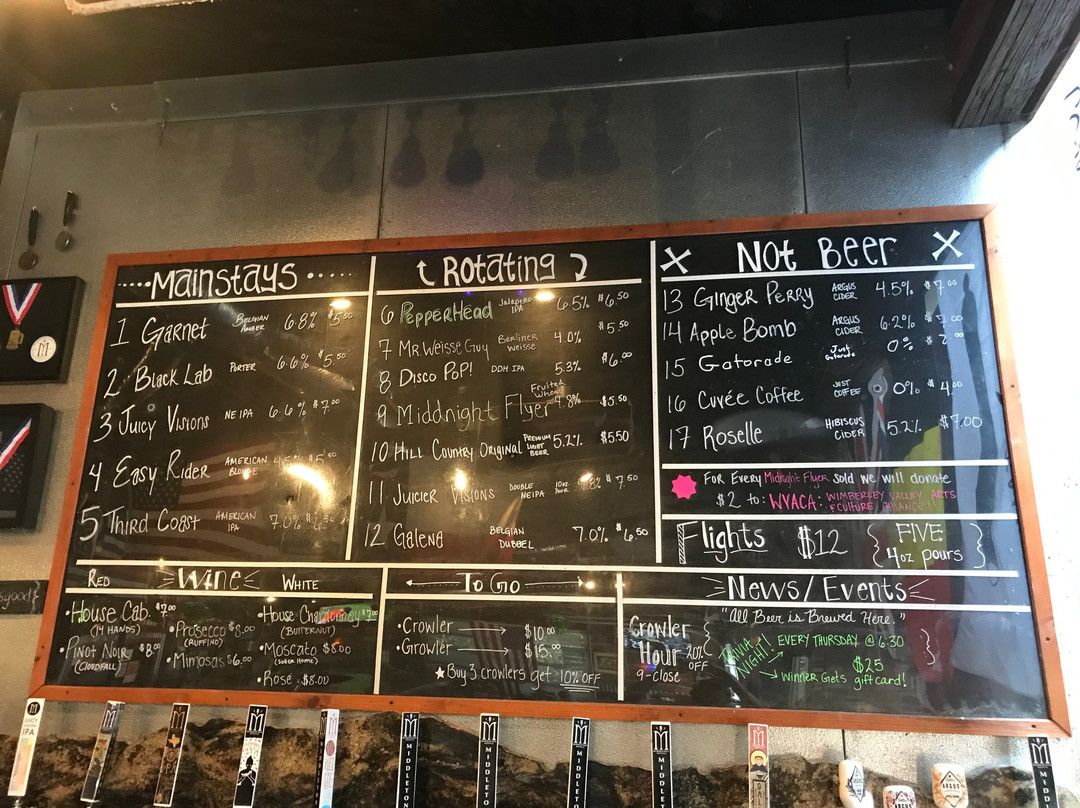 Mainstays
1 Garnet BELGIAN AMBER 6.8% $5.50
2 Black Lab PORTER 6.6% $5.50
3 Juicy Visions NE IPA 6.6% $7.00
4 Easy Rider AMERICAN
5 Third Coast AMERICAN IPA 7.0%
Rotating
6 PepperHead Jalapeño IPA 6.5% $6.50
7 Mr. Weisse Guy Berliner Weisse 4.0% $5.50
8 Disco Pop! DDH IPA 5.3% $6.00
9 Middnight Flyer Fruited Wheat 4.8% $5.50
10 Hill Country Original PREMIUM LIGHT BEER 5.2% $550
11 Juicier Visions DOUBLE NEIPA 10oz POUR $7.50
12 Galena BELGIAN DUBBEL 7.0% $6.50
Not Beer
13 Ginger Perry ARGUS CIDER 4.5% $7.00
14 Apple Bomb ARGUS CIDER 6.2% $7.00
15 Gatorade Just Gatorade 0% $2.00
16 Cuvée Coffee JUST COFFEE 0% $4.00
17 Roselle HIBISCUS CIDER 5.2% $7.00
For Every Midnight Flyer sold we will donate
$2 to: WVACA: WIMBERLEY VALLEY ARTS
& CULTURE ALLIANCE!
Flights $12 {FIVE
4oz pours}
Wine
Red
•House Cab. $7.00
(14 HANDS)
•Pinot Noir $8.00
(CLOUDFALL)
•Prosecco $8.00
(RUFFINO)
•Mimosas $6.00
White
•House Chardonnay $7.00
(BUTTERNUT)
•Moscato $8.00
•Rosé $8.00
To Go
•Crowler $10.00
•Growler $15.00
★Buy 3 crowlers get 10% OFF
News/Events
"All Beer is Brewed Here."
Growler
Hour 20% OFF
9-close
TRIVIA NIGHT! EVERY THURSDAY @ 6:30
$25
Winner Gets gift card!
IPA
MIDDLETON
MIDDLETO
MIDDLE
MIDDLE
MIDD
ARGUS